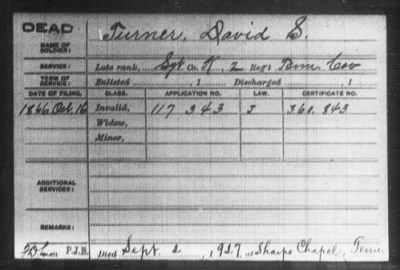 DEAD
NAME OF SOLDIER: Turner, David S.
SERVICE: Late rank, Sgt Co. K, 2 Reg't Tenn. Cav
TERM OF SERVICE: Enlisted , 1 Discharged , 1
DATE OF FILING. CLASS. APPLICATION NO. LAW. CERTIFICATE NO.
1866 Oct 16 Invalid, 117 343 360.843
Widow,
Minor,
ADDITIONAL SERVICES:
REMARKS:
P.J.B. Died Sept. 2, 1927, at Sharps Chapel, Tenn.